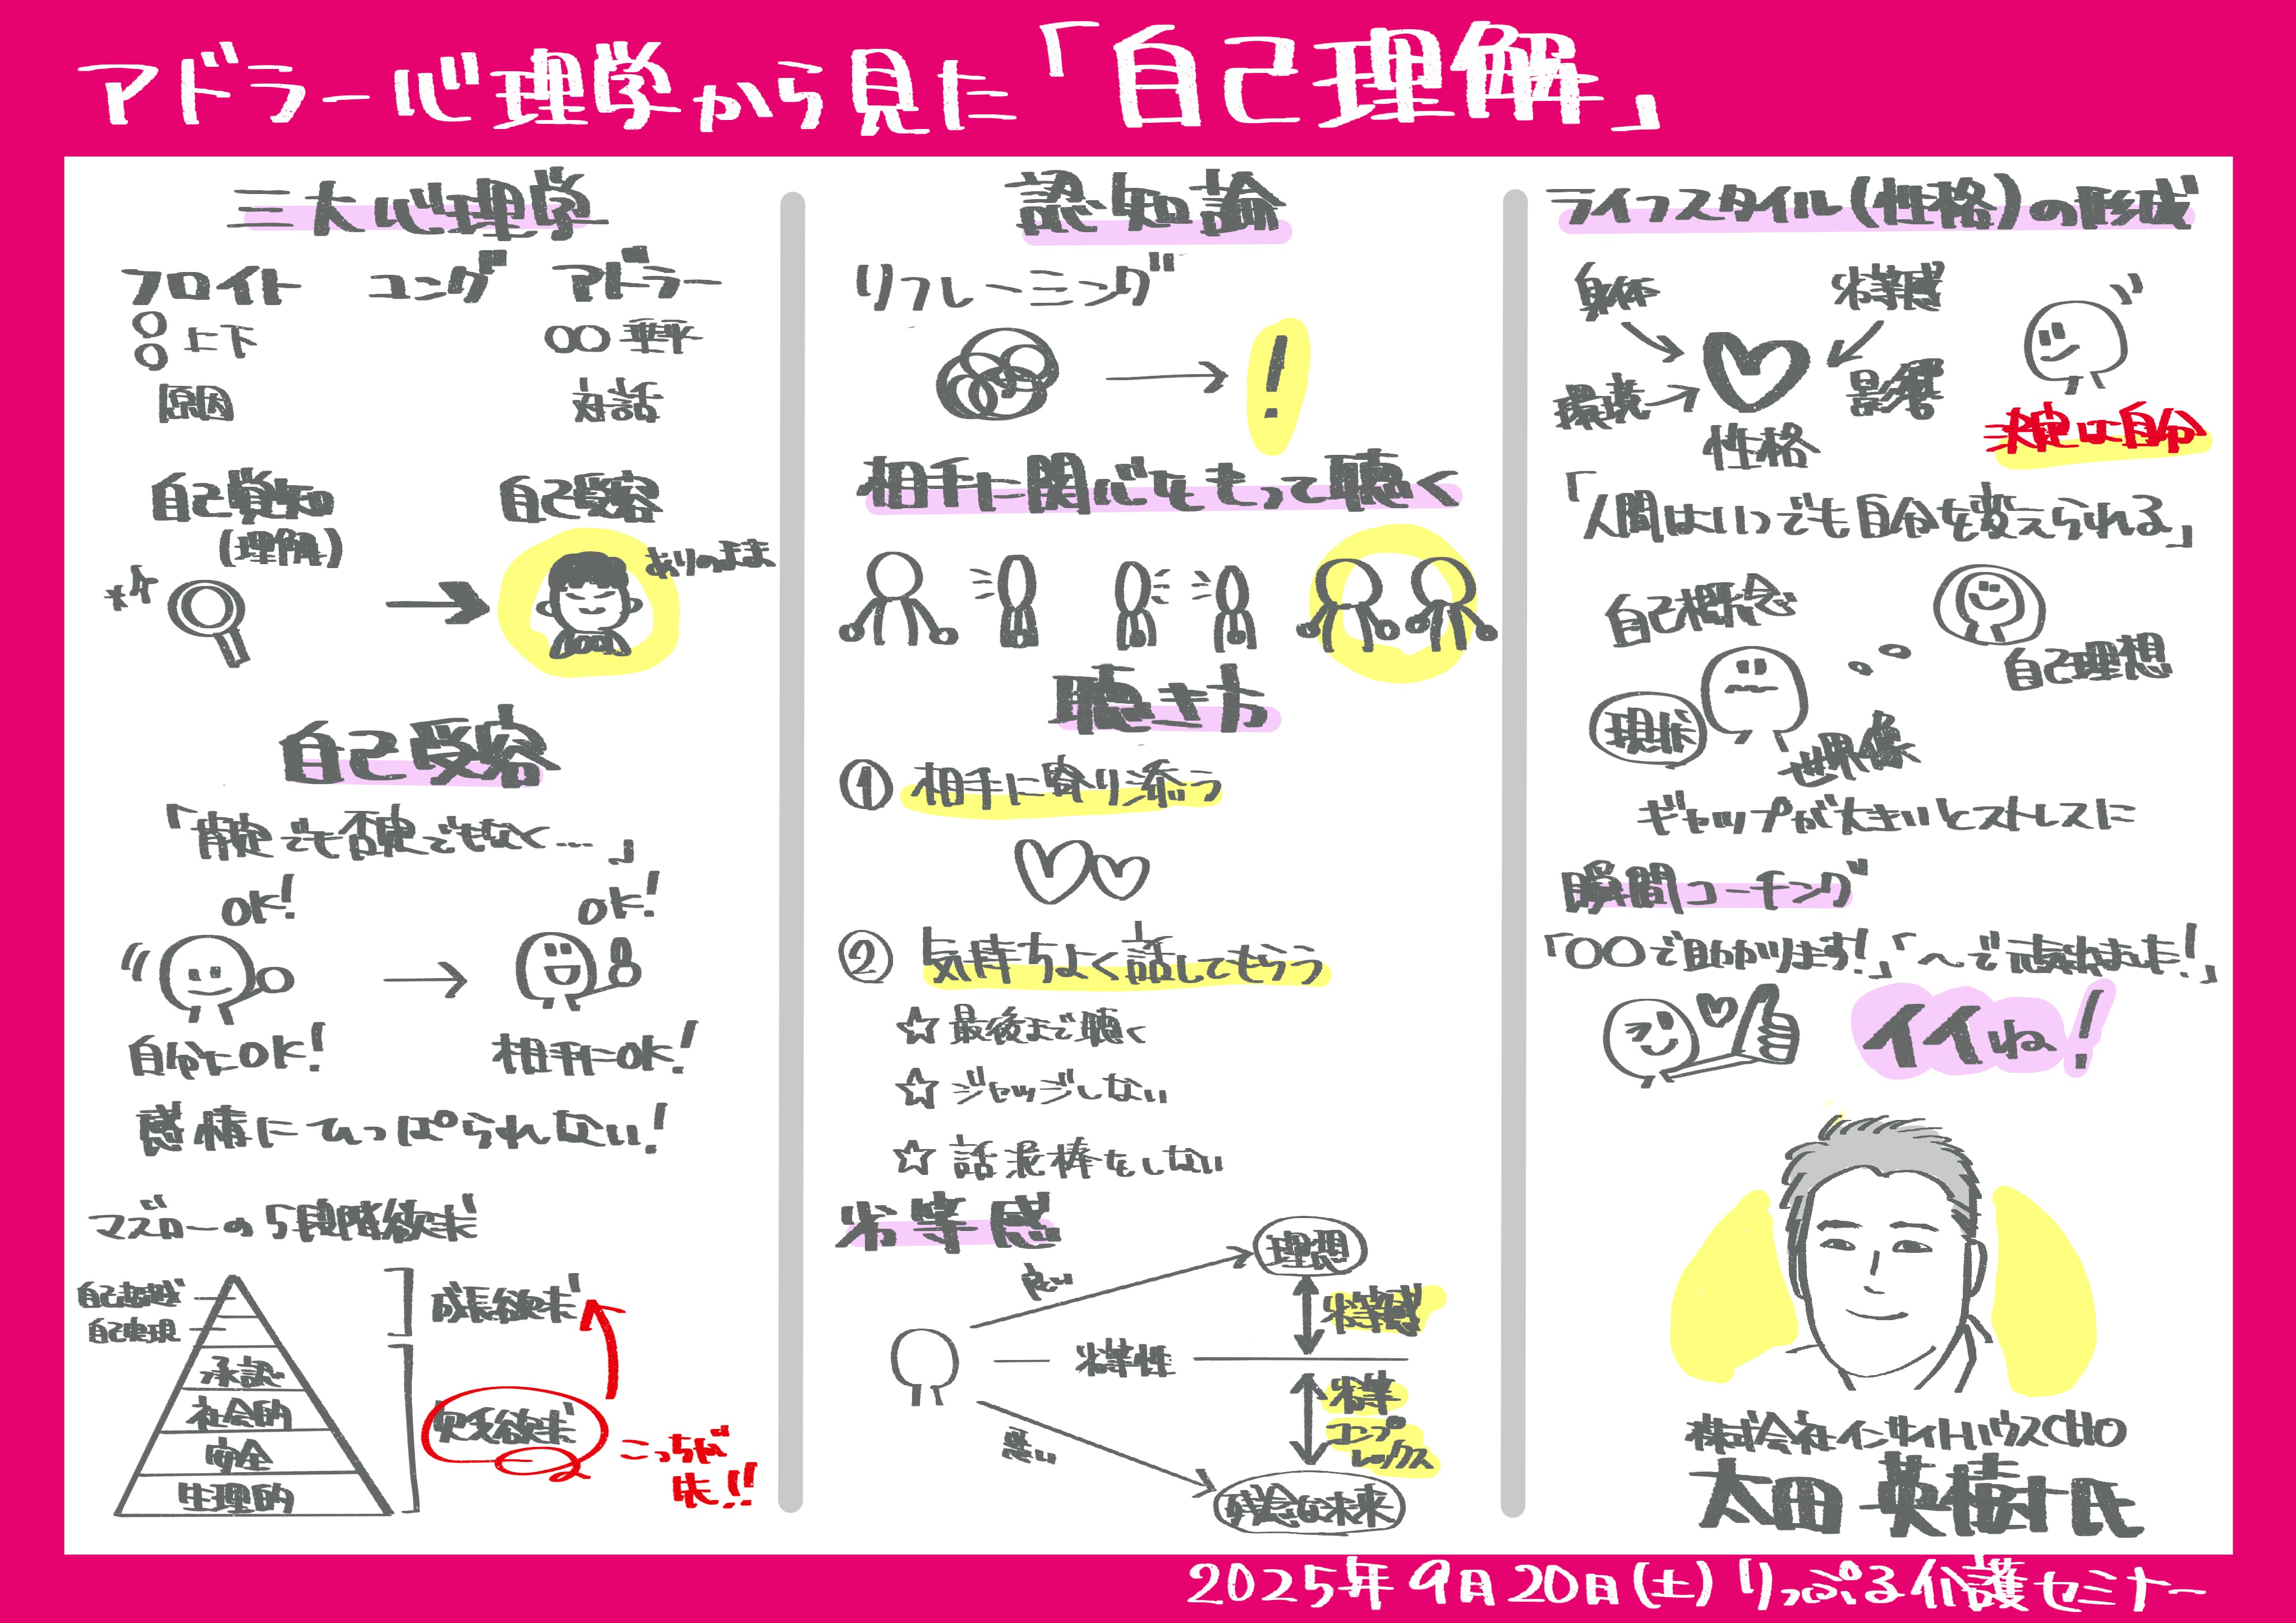 アドラー心理学から見た「自己理解」
三大心理学
フロイト ユング アドラー
上下 水平
原因 対話
自己覚知
(理解)
自己受容
ありのまま
自己受容
「肯定でも否定でもなく…」
OK! OK!
自分にOK! 相手にOK!
感情にひっぱられない!
マズローの5段階欲求
自己超越
自己実現
承認
社会的
安全
生理的
成長欲求
欠乏欲求
こっちが
先!!
認知論
リフレーミング
!
相手に関心をもって聴く
聴き方
① 相手に寄り添う
② 気持ちよく話してもらう
☆ 最後まで聴く
☆ ジャッジしない
☆ 話泥棒をしない
劣等感
良い
理想
劣等感
劣等性
劣等
コンプ
レックス
悪い
残念な未来
ライフスタイル(性格)の形成
身体
劣等感
環境
影響
性格
決定は自分
「人間はいつでも自分を変えられる」
自己概念
自己理想
現状
世界像
ギャップが大きいとストレスに
瞬間コーチング
「○○で助かります!」「〜で癒されました!」
イイね!
株式会社インサイトハウスCHO
太田 英樹氏
2025年9月20日(土)りっぷる介護セミナー